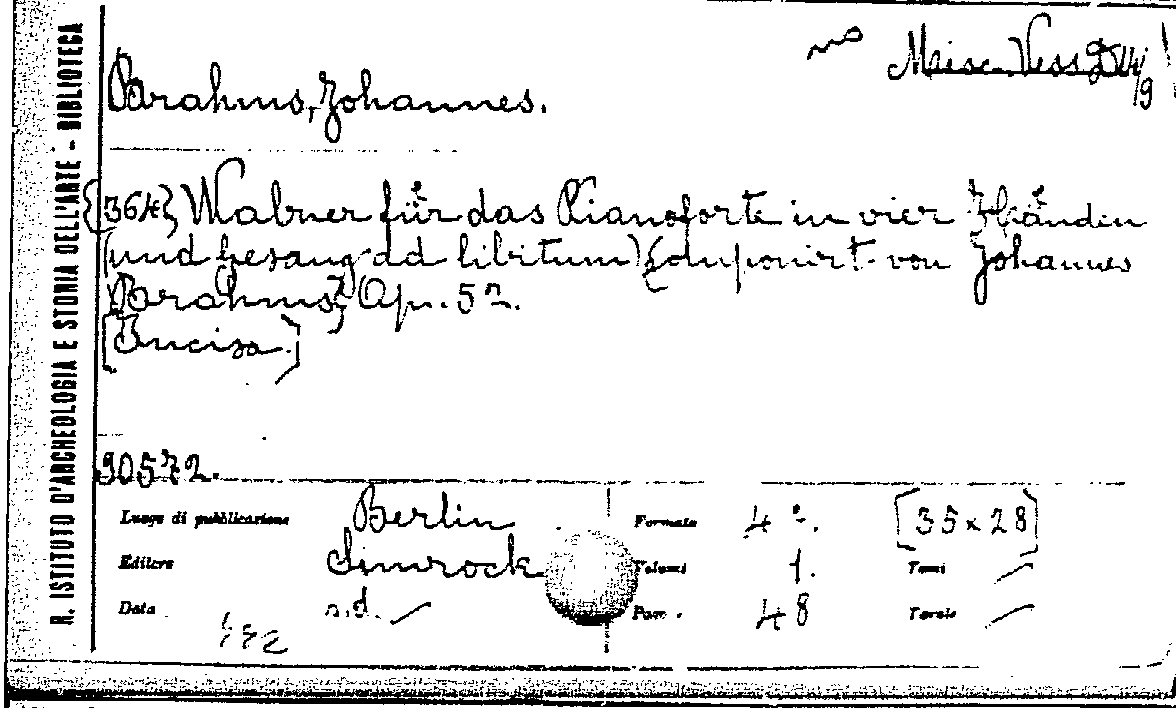 R. ISTITUTO D'ARCHEOLOGIA E STORIA DELL'ARTE - BIBLIOTECA
Misc. Vess
Brahms, Johannes.
{364} Walzer für das Pianoforte in vier Händen
(und Gesang ad libitum) componirt von Johannes
Brahms} Op. 52.
[Incisa.]
90572.
Luogo di pubblicazione Berlin Formato 4º. [35 x 28]
Editore Simrock Volumi 1. Tomi
Data n.d. Pag. 48 Tavole